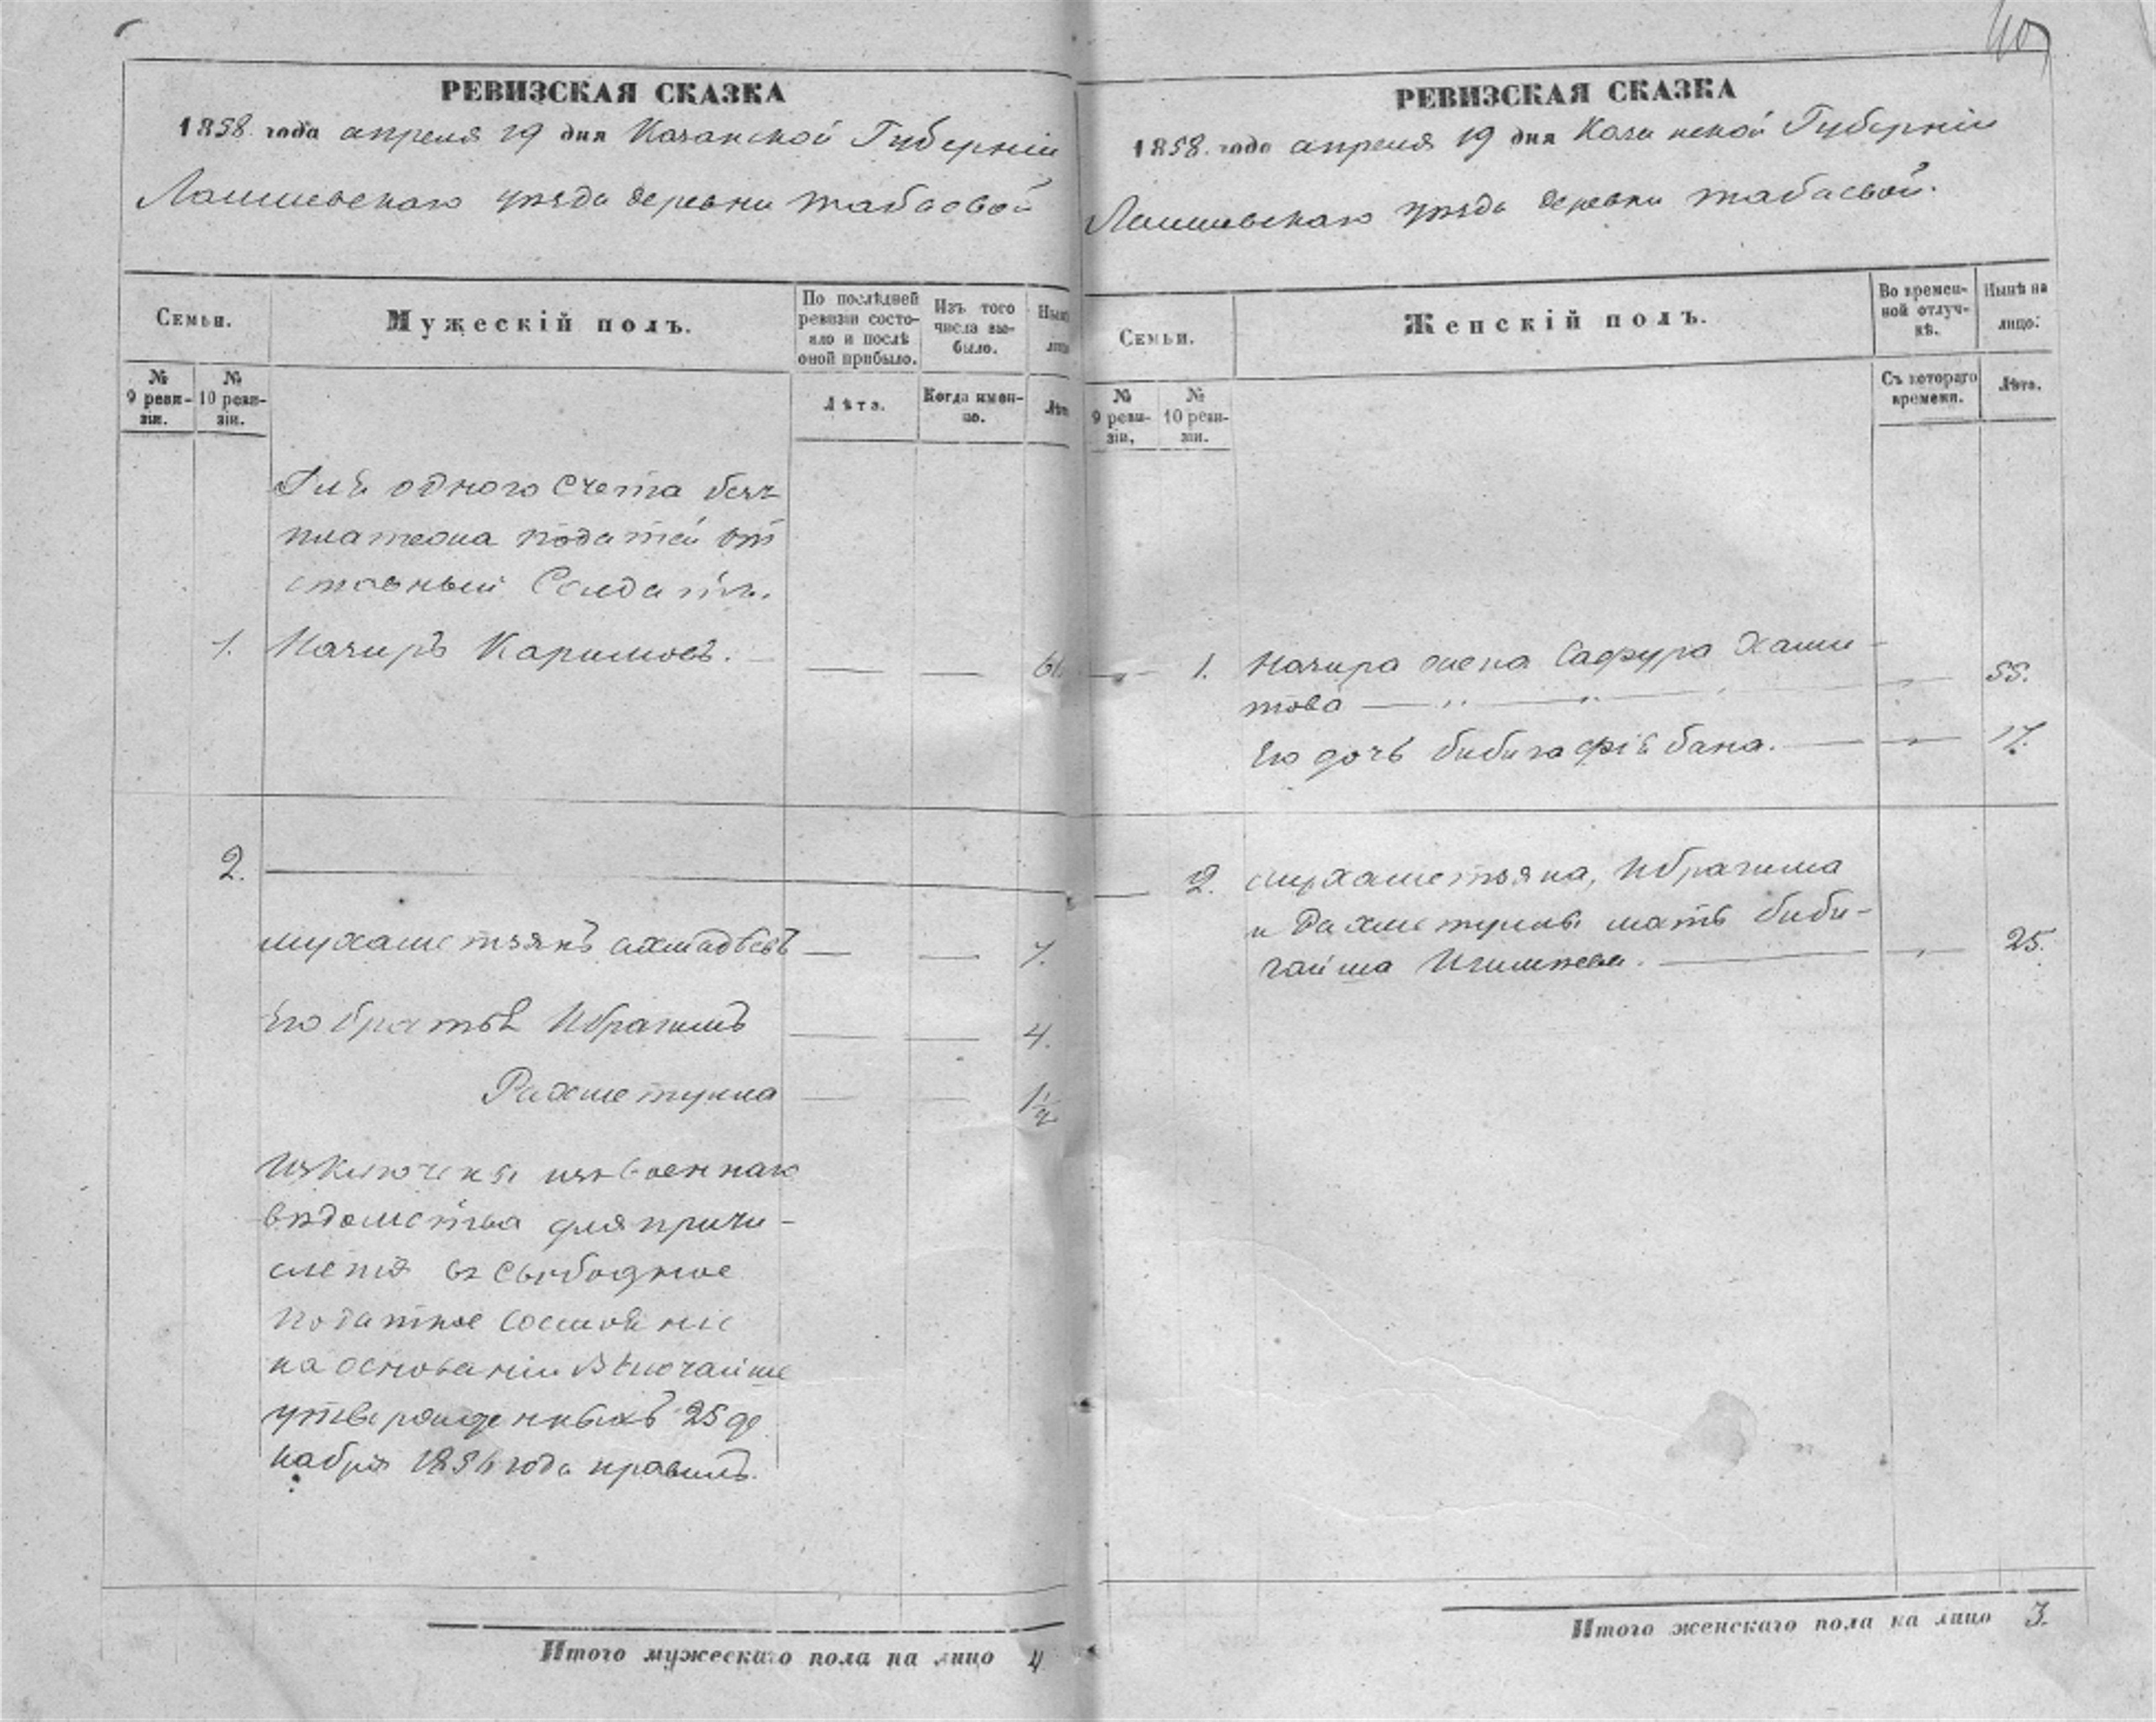 40
РЕВИЗСКАЯ СКАЗКА
1858 года апреля 19 дня Казанской Губерніи
Лаишевскаго уѣзда деревни Табаевой
Семьи.
Мужескій полъ.
По послѣдней ревизіи состояло и послѣ оной прибыло.
Изъ того числа выбыло.
№ 9 ревизіи.
№ 10 ревизіи.
Лѣта.
Когда именно.
Для одного счета безъ
платежа податей от
ставный Солдатъ.
1. Начиръ Каримовъ. — — 61.
2.
Мухаметзянъ Ахмадѣевъ — — 7.
Его братья Ибрагимъ — — 4.
Рахметулла — — 1½
Изключены изъ военнаго
вѣдомства для причи-
сленія въ свободное
податное состояніе
на основаніи Высочайше
утвержденныхъ 25 де
кабря 1856 года правилъ.
Итого мужескаго пола на лицо 4
РЕВИЗСКАЯ СКАЗКА
1858 года апреля 19 дня Казанской Губерніи
Лаишевскаго уѣзда деревни Табаевой.
Семьи.
Женскій полъ.
Во временной отлучкѣ.
Нынѣ на лицо.
№ 9 ревизіи.
№ 10 ревизіи.
Съ котораго времени.
Лѣта.
1. Начира жена Сафура Хами-
това — — 55.
Его дочь Биби — — 17.
2. Мухаметзяна, Ибрагима
и Рахметуллы мать Биби-
гайша — — 25.
Итого женскаго пола на лицо 3.